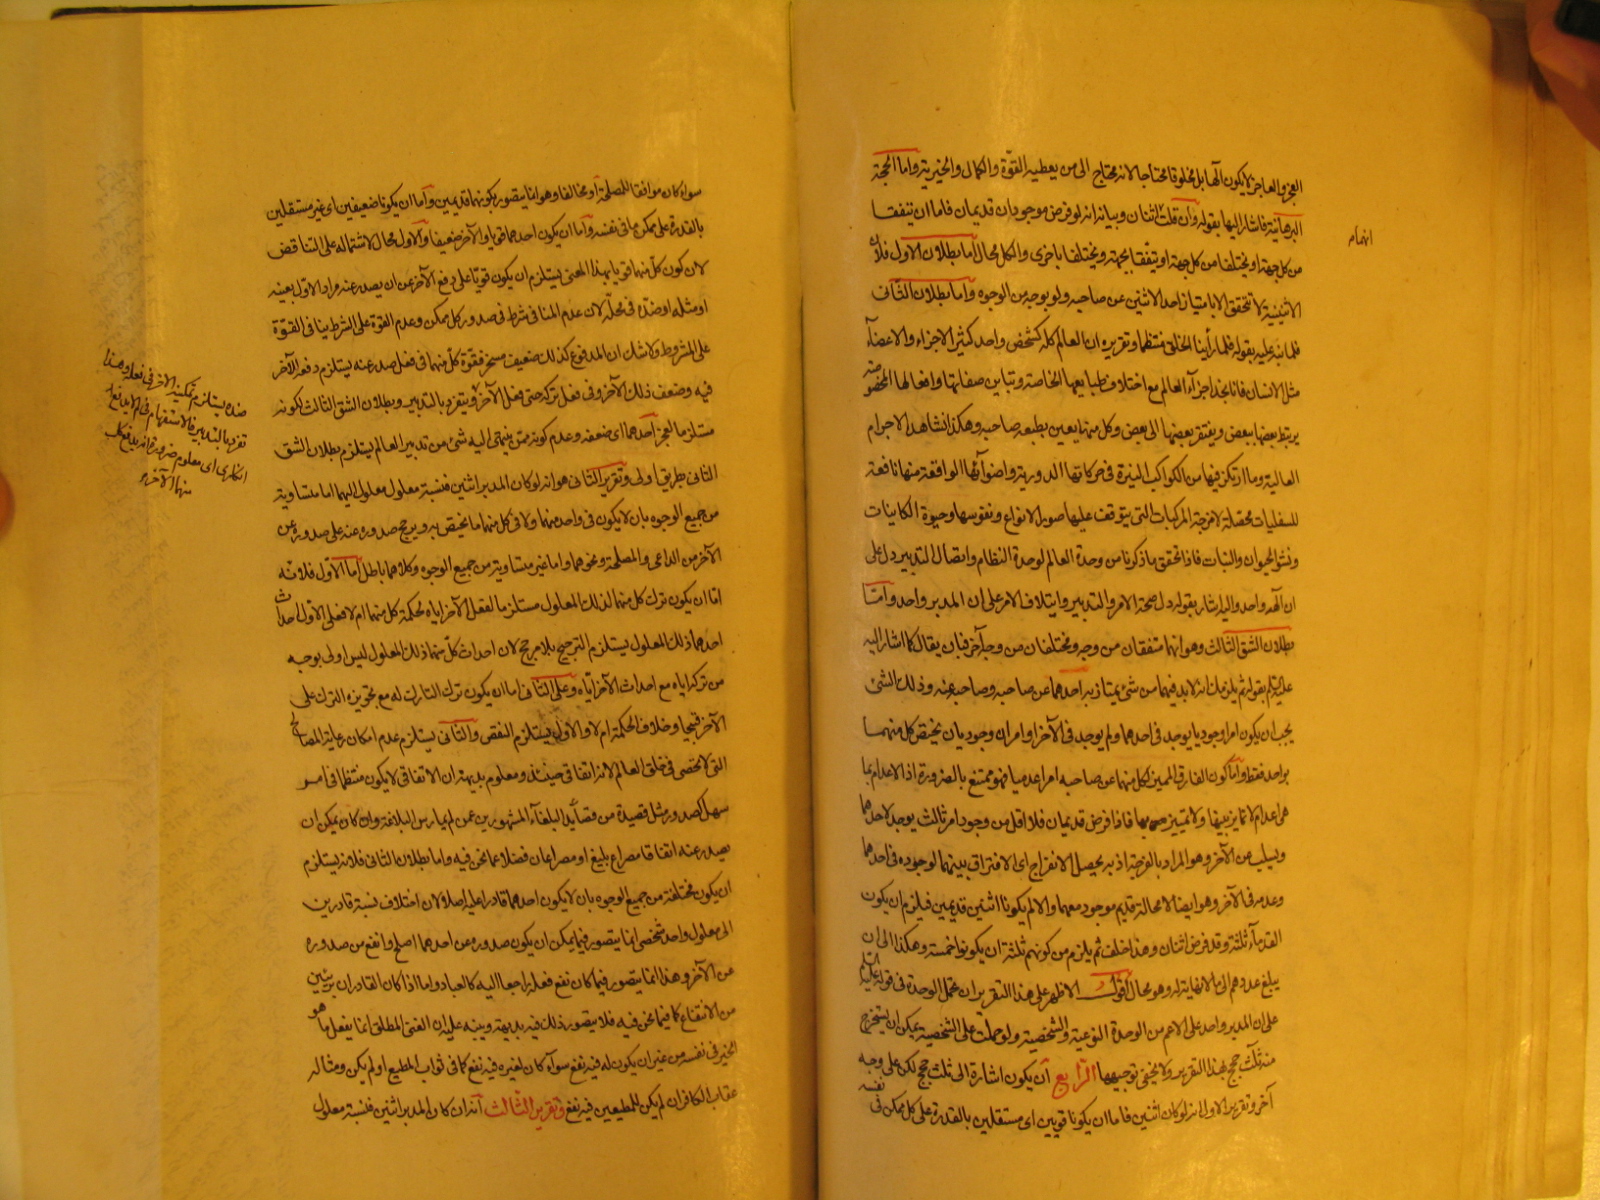 العجز والعاجز لا يكون الها بل مخلوقا محتاجا لانه محتاج الى من يعطيه القوة والكمال والخيرية واما الحجة
البرهانية فاشار اليها بقوله وان قلت اثنان وبيانه انه لو فرض موجودان قديمان فاما ان يتفقا
من كل جهة او يختلفا من كل جهة او يتفقا بجهة ويختلفا باخرى والكل محال اما بطلان الاول فلان
الاثنينية لا تتحقق الا بامتياز احد الاثنين عن صاحبه ولو بوجه من الوجوه واما بطلان الثانى
فلما نبه عليه بقوله فلما رأينا الخلق منتظما وتقريره ان العالم كله كشخص واحد كثير الاجزاء والاعضاء
مثل الانسان فانا نجد اجزاء العالم مع اختلاف طبايعها الخاصة وتباين صفاتها وافعالها المخصوصة
يرتبط بعضها ببعض ويفتقر بعضها الى بعض وكل منها يعين بطبعه صاحبه وهكذا نشاهد الاجرام
العالية وما ارتكز فيها من الكواكب المنيرة فى حركاتها الدورية واضوائها الواقعة منها نافعة
للسفليات محصلة لامزجة المركبات التى يتوقف عليها صور الانواع ونفوسها وحيوة الكاينات
ونشو الحيوان والنبات فاذا تحقق ما ذكرنا من وحدة العالم لوحدة النظام واتصال التدبير دل على
ان الهه واحد واليه اشار بقوله دل صحة الامر والتدبير وايتلاف الامر على ان المدبر واحد واما
بطلان الشق الثالث وهو انهما متفقان من وجه ومختلفان من وجه آخر فبان يقال كما اشار اليه
عليه السلام بقوله ثم يلزمك انه لا بد فيهما من شئ يمتاز به احدهما عن صاحبه وصاحبه عنه وذلك الشئ
يجب ان يكون امرا وجوديا يوجد فى احدهما ولم يوجد فى الآخر او امران وجوديان يختص كل منهما
بواحد فقط واما كون الفارق المميز لكل منهما عن صاحبه امرا عدميا فهو ممتنع بالضرورة اذ الاعدام بما
هى اعدام لا تمايز بينها ولا تمييز بها فاذا فرض قديمان فلا اقل من وجود امر ثالث يوجد لاحدهما
ويسلب عن الآخر وهو المراد بالفرجة اذ به يحصل الانفراج اى الافتراق بينهما لوجوده فى احدهما
وعدمه فى الآخر وهو ايضا لا محالة قديم موجود معهما والا لم يكونا اثنين قديمين فيلزم ان يكون
القدماء ثلثة وقد فرض اثنان وهذا خلف ثم يلزم من كونهم ثلثة ان يكونوا خمسة وهكذا الى ان
يبلغ عددهم الى ما لا نهاية له وهو محال اقول الاظهر على هذا التقرير ان تحمل الوحدة فى قوله عليه السلام
على ان المدبر واحد على الاعم من الوحدة النوعية والشخصية ولو حملت على الشخصية يمكن ان يستخرج
منه ثلث حجج بهذا التقرير ولا يخفى توجيهها الرابع ان يكون اشارة الى ثلث حجج لكن على وجه
آخر وتقرير الاول انه لو كان اثنين فاما ان يكونا قويين اى مستقلين بالقدرة على كل ممكن فى نفسه
سواء كان موافقا للمصلحة او مخالفا وهو انما يتصور بكونهما قديمين واما ان يكونا ضعيفين اى غير مستقلين
بالقدرة على ممكن ما فى نفسه واما ان يكون احدهما قويا والآخر ضعيفا والاول محال لاشتماله على التناقض
لان كون كل منهما قويا بهذا المعنى يستلزم ان يكون قويا على دفع الآخر عن ان يصدر عنه مراد الاول بعينه
او مثله او ضده فى محله لان عدم المنافى شرط فى صدور كل ممكن وعدم القوة على الشرط ينافى القوة
على المشروط ولا شك ان المدفوع كذلك ضعيف مسخر فقوة كل منهما فى فعل صدر عنه يستلزم دفعه الآخر
فيه وضعف ذلك الآخر وفى فعل تركه حتى فعل الآخر ويتفرد بالتدبير وبطلان الشق الثالث لكونه
مستلزما لعجز احدهما اى ضعفه وعدم كونه ممن ينتهى اليه شئ من تدبير العالم يستلزم بطلان الشق
الثانى بطريق اولى وتقرير الثانى هو انه لو كان المدبر اثنين فنسبة معلول معلول اليهما اما متساوية
من جميع الوجوه بان لا يكون فى واحد منهما ولا فى كل منهما ما يختص به ويرجح صدوره عنه على صدوره عن
الآخر من الداعى والمصلحة ونحوهما واما غير متساوية من جميع الوجوه وكلاهما باطل اما الاول فلانه
اما ان يكون ترك كل منهما لذلك المعلول مستلزما لفعل الآخر اياه لحكمة كل منهما ام لا فعلى الاول احداث
احدهما ذلك المعلول يستلزم الترجيح بلا مرجح لان احداث كل منهما ذلك المعلول ليس اولى بوجه
من تركه اياه مع احداث الآخر اياه وعلى الثانى اما ان يكون ترك التارك له مع تجويزه الترك على
الآخر قبيحا وخلاف الحكمة ام لا والاول يستلزم النقص والثانى يستلزم عدم امكان رعاية المصالح
التى لا تحصى فى خلق العالم لانه اتفاقى حينئذ ومعلوم بديهة ان الاتفاقى لا يكون منتظما فى امر
سهل كصدور مثل قصيدة من قصائد البلغاء المشهورين عمن لم يمارس البلاغة وان كان يمكن ان
يصدر عنه اتفاقا مصراع بليغ او مصراعان فضلا عما نحن فيه واما بطلان الثانى فلانه يستلزم
ان يكون مختلفة من جميع الوجوه بان لا يكون احدهما قادرا عليه اصلا لان اختلاف نسبة قادرين
الى معلول واحد شخصى انما يتصور فيما يمكن ان يكون صدوره عن احدهما اصلح وانفع من صدوره
عن الآخر وهذا انما يتصور فيما كان نفع فعله راجعا اليه كالعباد واما اذا كان القادران بريئين
من الانتفاع كما فيما نحن فيه فلا يتصور ذلك فيه بديهة وينبه عليه ان الغنى المطلق انما يفعل ما هو
الخير فى نفسه من غير ان يكون له فيه نفع سواء كان لغيره فيه نفع كما فى ثواب المطيع او لم يكن ومثاله
عقاب الكافر ان لم يكن للمطيعين فيه نفع وتقرير الثالث انه ان كان المدبر اثنين فنسبة معلول
ضده يستلزم تمكين الآخر فى فعله وهذا
تفرد بالتدبير فالاستفهام فى لم لا يدفع
انكارى اى معلوم ضرورة انه يدفع كل
منهما الآخر